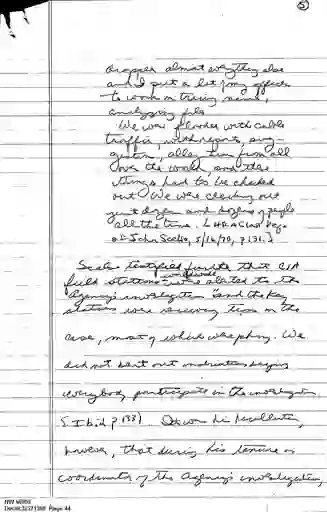 5
dropped almost everything else
and I put a lot of my officers
to work on tracing names,
analyzing files
We were flooded with cable
traffic, with reports, sug-
gestions, allegations from all
over the world, and these
things had to be checked
out. We were checking out
just dozens and dozens of people
all the time. (HSCA Class Dep.
of John Scelso, 5/16/78, p 131.)
Scelso testified further that CIA
field stations worldwide were alerted to the
Agency's investigation "and the key
stations were receiving tips on the
case, most of which were phony. We
did not send out instructions saying
everybody participate in the investigation.
(Ibid p 133) It was his recollection,
however, that during his tenure as
coordinator of the Agency's investigation,
NW 66000
DocId:32271368 Page 44